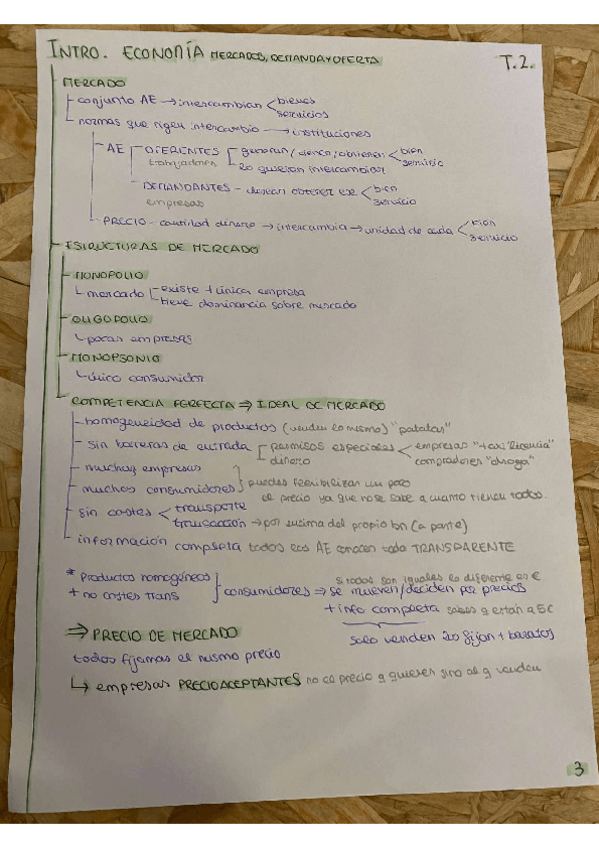 INTRO. ECONOMÍA MERCADOS, DEMANDA Y OFERTA T.2.
MERCADO
conjunto AE → intercambian < bienes
servicios
normas que rigen intercambio → instituciones
AE OFERENTES generan/ofrecen/obtienen < bien
trabajadores lo quieren intercambiar servicio
DEMANDANTES - desean obtener ese < bien
empresas servicio
PRECIO - cantidad dinero → intercambia → unidad de cada < bien
servicio
ESTRUCTURAS DE MERCADO
MONOPOLIO
mercado existe 1 única empresa
tiene dominancia sobre mercado
OLIGOPOLIO
pocas empresas
MONOPSONIO
único consumidor
COMPETENCIA PERFECTA ⇒ IDEAL DE MERCADO
homogeneidad de productos (venden lo mismo) "patatas"
sin barreras de entrada permisos especiales < empresas "taxi licencia"
dinero compradores "droga"
muchas empresas
muchos consumidores } puedes flexibilizar un poco
el precio ya que no se sabe a cuanto tienen todos.
sin costes < transporte
transacción → por encima del propio bn (a parte)
información completa todos los AE conocen toda TRANSPARENTE
* productos homogéneos
+ no costes trans } consumidores ⇒ se mueven/deciden por precios
si todos son iguales lo diferente es €
+ info completa sabes q están a 5€
solo venden lo fijan + baratos
⇒ PRECIO DE MERCADO
todos fijamos el mismo precio
↳ empresas PRECIOACEPTANTES no el precio q quieren sino al q venden
3